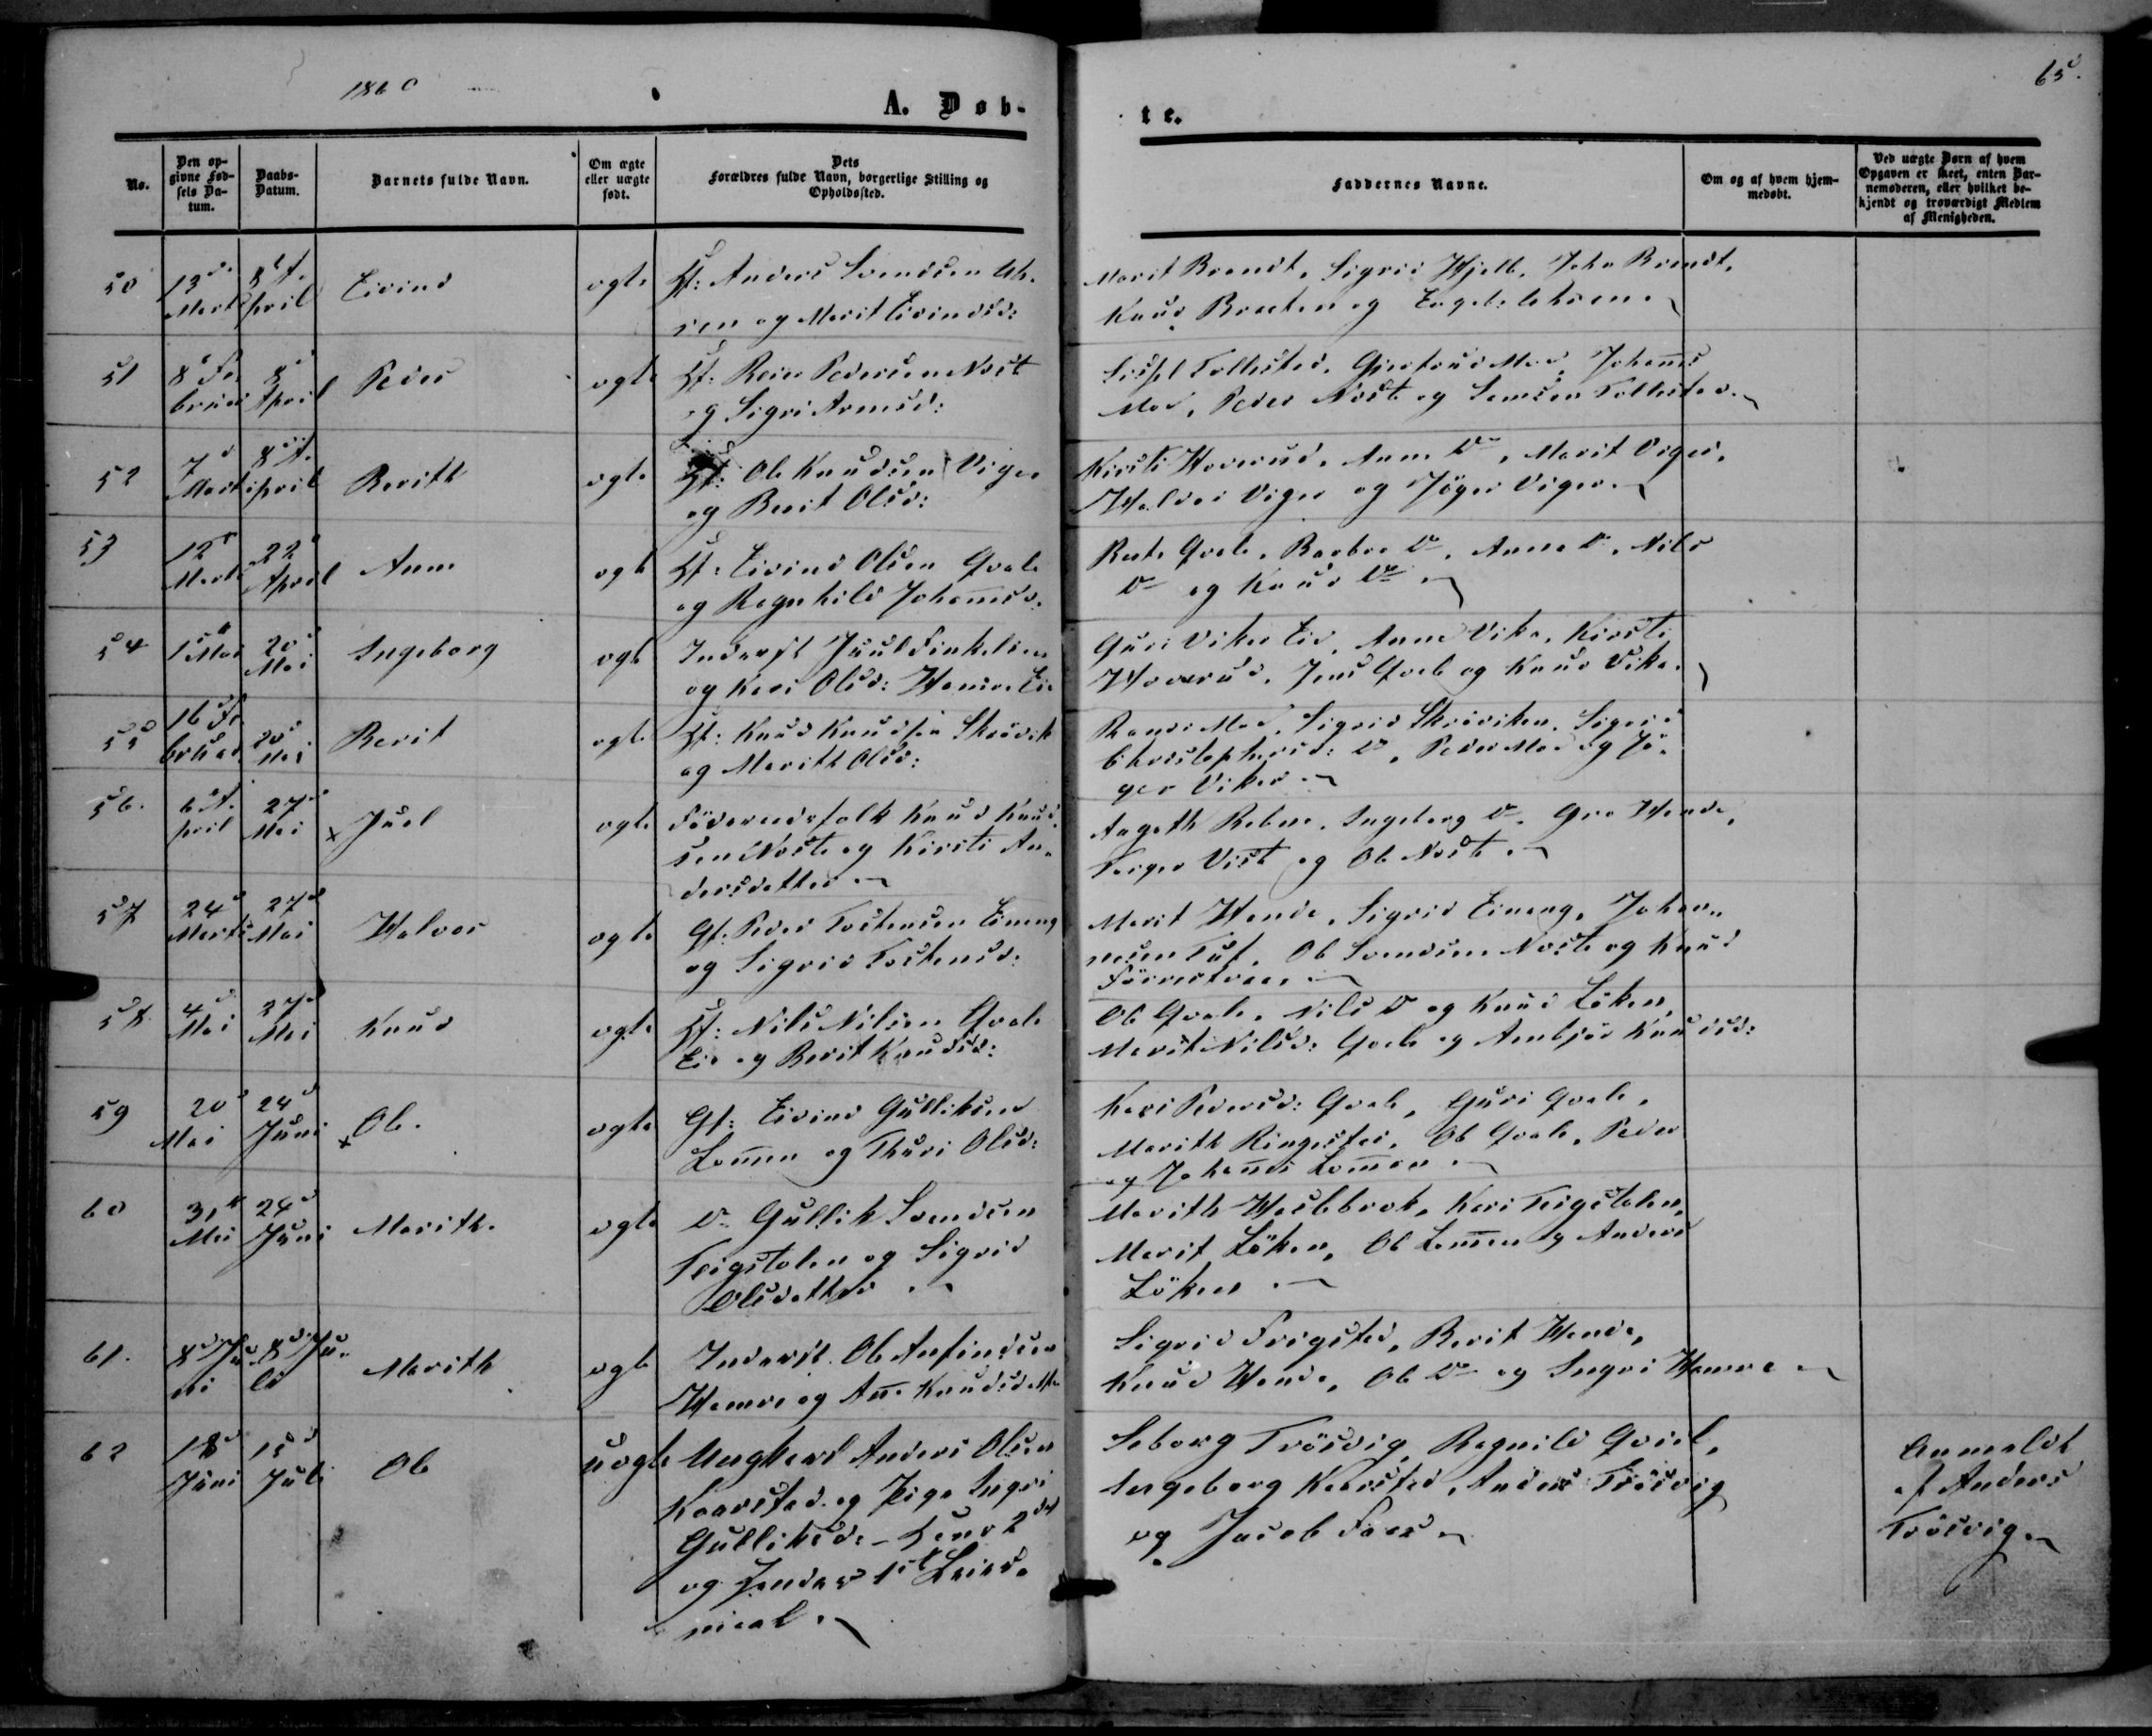 1860
A. Døb-
te.
65.
No.
Den op-
givne Fød-
sels Da-
tum.
Daabs-
Datum.
Barnets fulde Navn.
Om ægte
eller uægte
født.
Dets
Forældres fulde Navn, borgerlige Stilling og
Opholdssted.
Faddernes Navne.
Om og af hvem hjem-
medøbt.
Ved uægte Børn af hvem
Opgaven er skeet, enten Bar-
nemoderen, eller hvilket be-
kjendt og troværdigt Medlem
af Menigheden.
50 13de Marts 8de April Eivind ægte Anders Svendsen
og Marit Eivindsd:
Marit Brandt, Sigrid Hjelle, John Brandt,
Knud Braaten og
51 8de Februar 8de April Peder ægte Peder Pedersen Noste
og Sigri
Follestad, Gjertrud Mo, Johannes
Mo, Peder Noste og Follestad.
52 7de Marts 8de April Berith ægte Ole Knudsen Viger
og Berit Olsd:
Kirsti Hoverud, Anne Do, Marit Viger,
Halvor Viger og Jøger Viger.
53 12te Marts 22de April Anne ægte Eivind Olsen Qvale
og Ragnhild Johannesd:
Qvale, Barbro Do, Anne Do, Nils
Do og Knud Do
54 1ste Mai 20de Mai Ingeborg ægte Inderst Juul
og Kari Olsd: Hamre Eie
Guri Viker Eie, Anne Vike, Kirsti
Hoverud, Jens Qvale og Knud Vike.
55 16de Februar 20de Mai Berit ægte Knud Knudsen Skrøvik
og Marith Olsd:
Randi Mo, Sigrid Skrøviken, Sigrid
Christophersd: Do, Peder Mo og Jø-
ger Viker
56. 6te April 27de Mai x Juel ægte Føderaadsfolk Knud Knud-
sen Noste og Kirsti An-
dersdatter
Aagoth Rebne, Ingeborg Do, Gro Wende,
og Ole Noste
57 24de Marts 27de Mai Halvor ægte Gf: Peder Tostensen Eineng
og Sigrid Tostensd:
Marit Wende, Sigrid Eineng, Johan-
nesen Tuf, Ole Svendsen Noste og Knud
58 4de Mai 27de Mai Knud ægte Nils Nilsen Qvale
Eie og Berit Knudsd:
Ole Qvale, Nils Do og Knud Løken,
Marit Nilsd: Qvale og Ambjør Knudsd:
59 20de Mai 24de Juni x Ole. ægte Gf: Eivind Gulliksen
Lomen og Thuri Olsd:
Kari Pedersd: Qvale, Guri Qvale,
Marith Ringestad, Ole Qvale, Peder
og Johannes Lomen
60 31te Mai 24de Juni Marith. ægte Do Gullik Svendsen
Feigstolen og Sigrid
Olsdatter
Marith Haslebrek, Kari Feigstolen,
Marit Løken, Ole Lomen og Anders
Løken
61. 8de Juni 8de Juli Marith ægte Inderst. Ole Anfindsen
Hamre og Anne Knudsdatter
Sigrid, Berit Wende,
Knud Wende, Ole Do og Ingri Hamre
62 18de Juni 15de Juli Ole uægte Ungkarl Anders Olsen
Kaarstad og Pige Ingri
Gulliksd: - hans 2det
og hendes 1ste Leier-
maal.
Seborg Trøsvig, Ragnild Qviel,
Ingeborg Kaarstad, Anders Trøsvig
og Jacob
Anmeldt
af Anders
Trøsvig